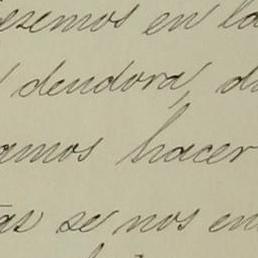 ezemos en la
dendora, d
amos hacer
tas se nos en